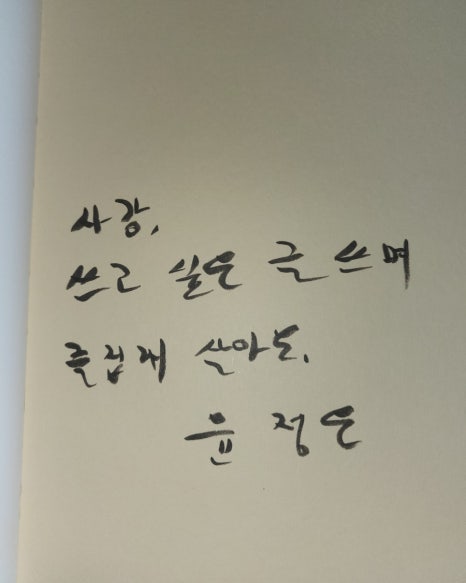 사랑,
쓰고 싶은 글 쓰며
즐겁게 살아요.
윤 정은